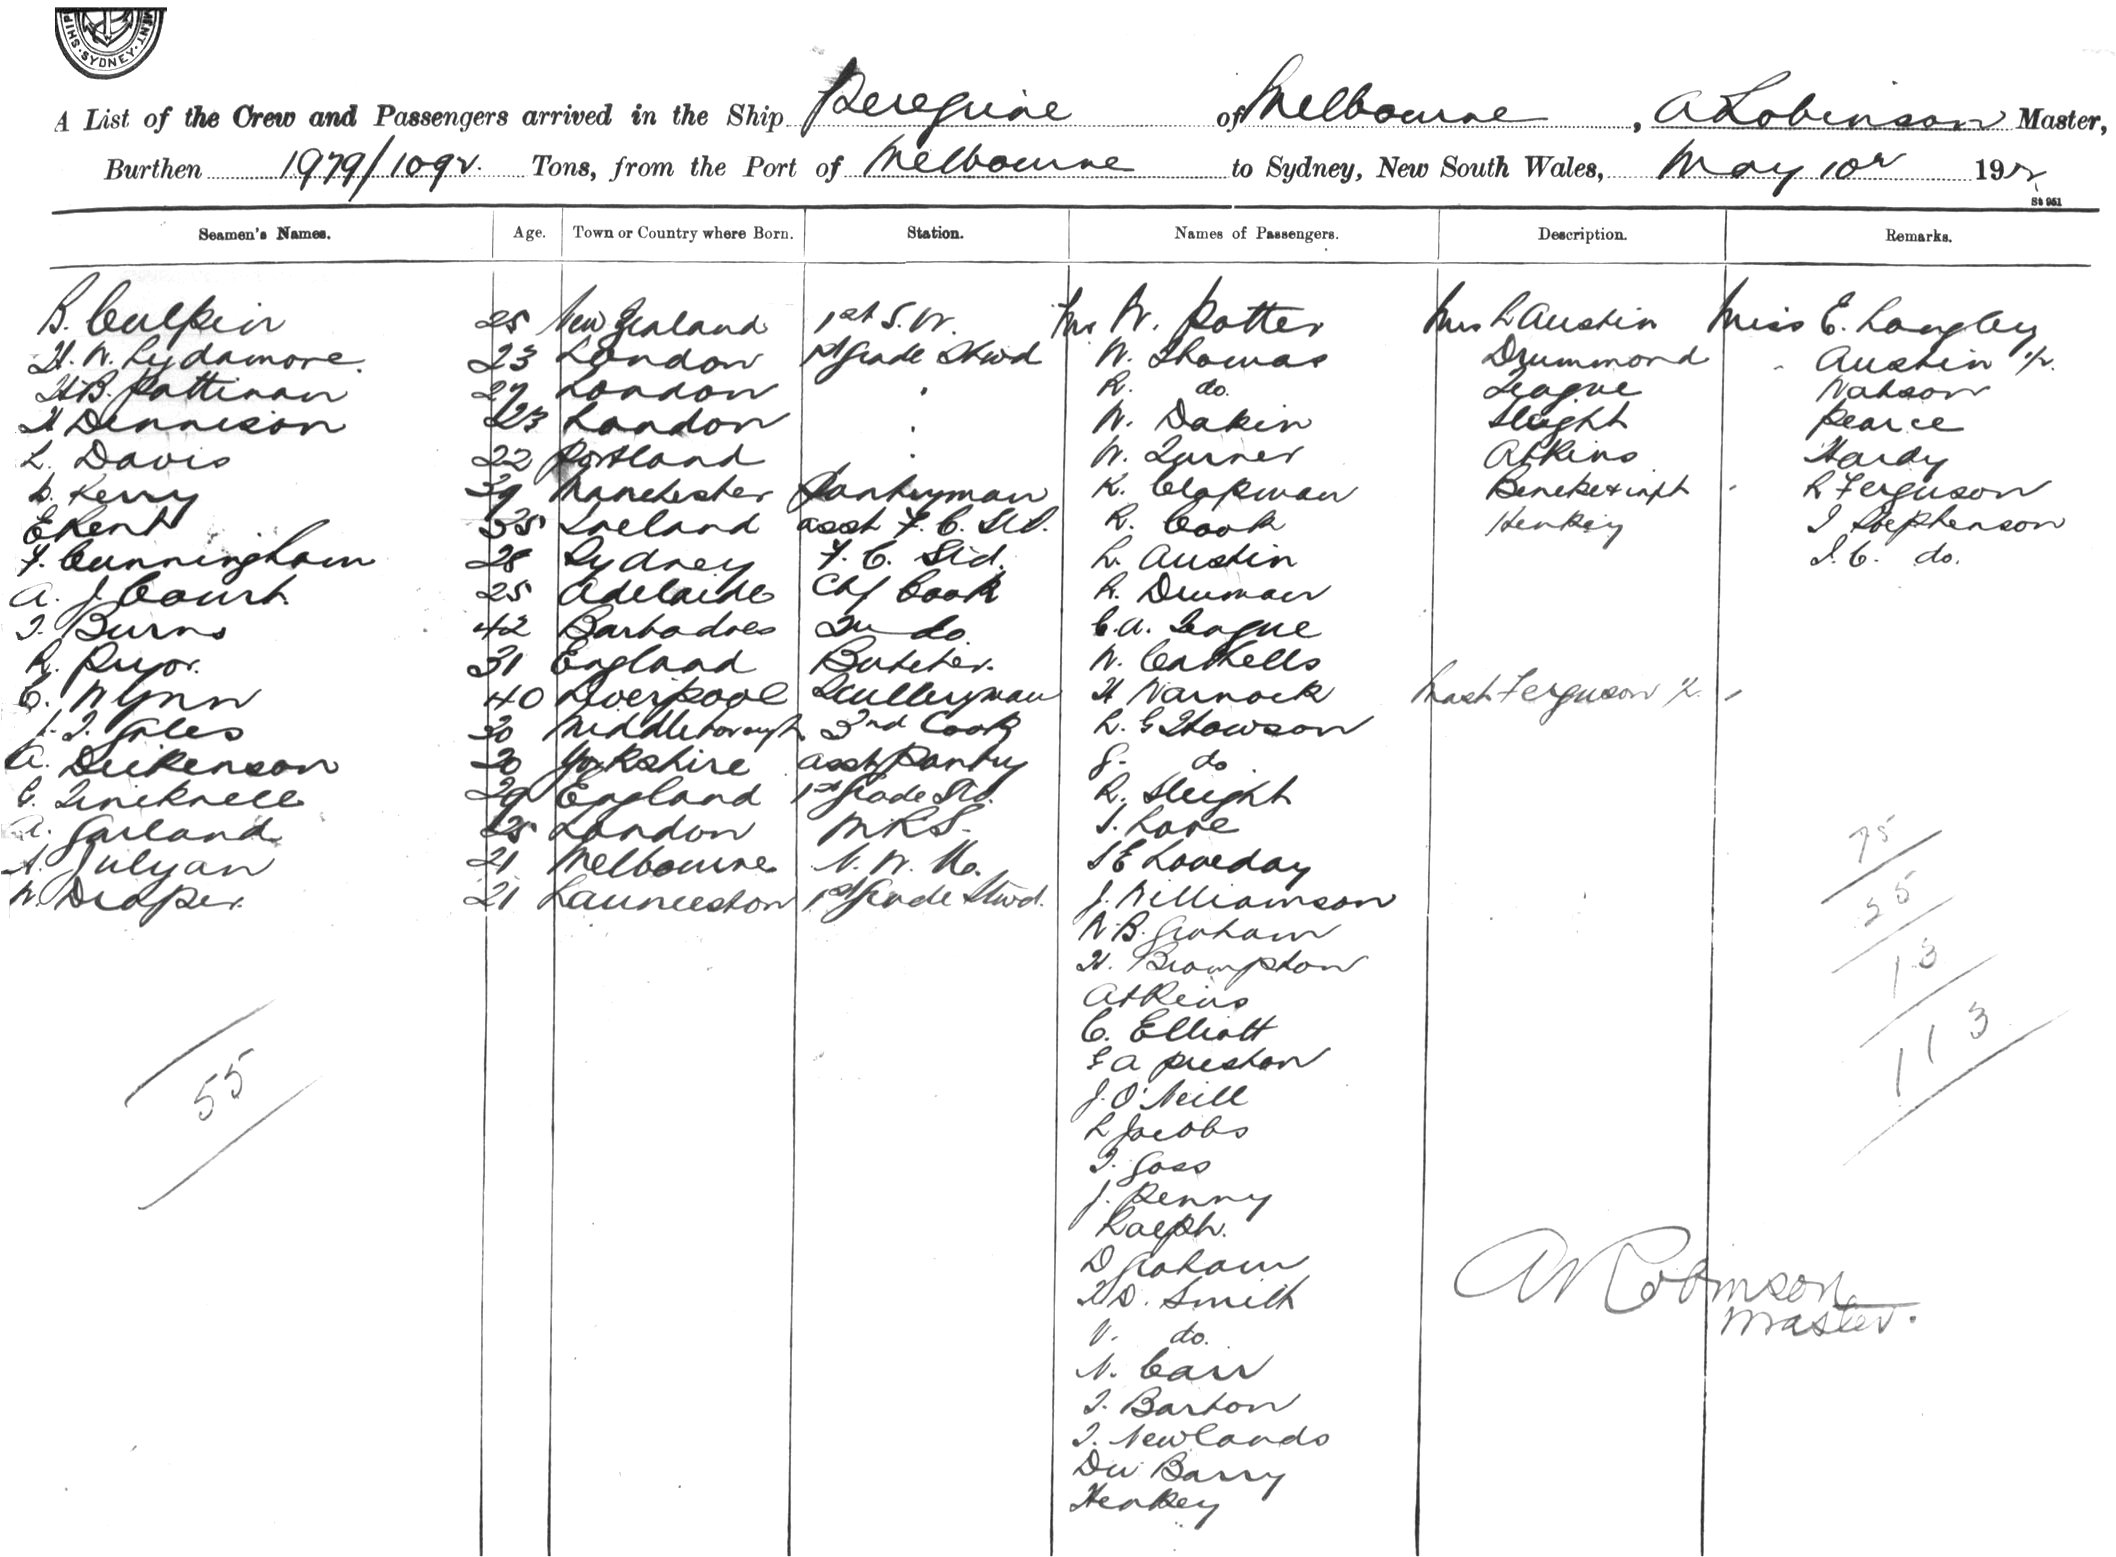 SHIP SYDNEY MENT
A List of the Crew and Passengers arrived in the Ship Peregrine of Melbourne, A Robinson Master,
Burthen 1979/1092. Tons, from the Port of Melbourne to Sydney, New South Wales, May 10 192
St 951
Seamen's Names. Age. Town or Country where Born. Station. Names of Passengers. Description. Remarks.
B. Culpin 25 New Zealand 1st S. W. Mr W. Potter Mrs L Austin Miss E. Langley
H. W. Lydamore. 23 London 1st Grade Stwd W. Thomas Drummond Austin
H B. Pattinan 27 London R. do. League Watson
H Dennison 23 London W. Dakin Sleight Pearce
L. Davis 22 Portland W. Turner Atkins Hardy
D. Kerry 39 Manchester Pantryman R. Clapman Beneke + inft R Ferguson
E Kent 35 Ireland asst F. C. Std. R. Cook Henkey I Stephenson
F. Cunningham 28 Sydney F. C. Std. L. Austin I. C. do.
A. J. Court. 25 Adelaide Chf Cook R. Druman
T. Burns 42 Barbadoes 2nd do. C. A. League
R. Pryor. 31 England Butcher. W. Cathells
C. Wynn 40 Liverpool Sculleryman H Warnock Mast Ferguson
J. T. Giles 30 Middleborough 3rd Cook L. G Howson
A. Dickenson 20 Yorkshire asst Pantry G. do
G. Tincknell 29 England 1st Grade Std. R. Sleight
A. Garland 25 London M R S. S. Lane
A. Julyan 21 Melbourne N. W. S E Loveday
W. Draper. 21 Launceston 1st Grade Stwd. J. Williamson
W. B. Graham
H. Brampton
Atkins
C. Elliott
G A Preston
J. O'Neill
L Jacobs
T. Goss
J. Penny
Ralph.
D Graham
H D. Smith
V. do.
N. Carr
T. Barton
T. Newlands
Du Barry
Henkey
55
75
25
13
113
A W Robinson
Master.